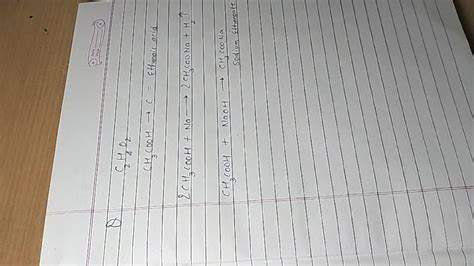 C₂H₄O₂
CH₃COOH → C = Ethanoic acid
2CH₃COOH + Na → 2CH₃COONa + H₂↑
CH₃COOH + NaOH → CH₃COONa
Sodium Ethanoate